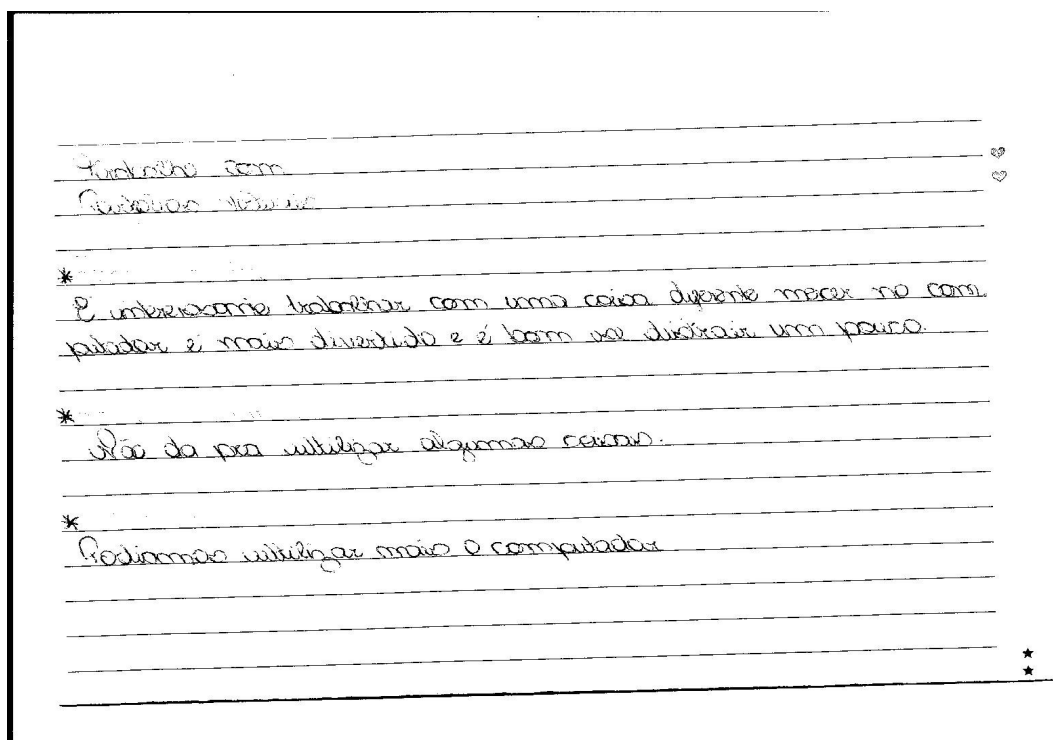 Trabalho com
*
É interesante trabalhar com uma coisa diferente mecer no com
putador é mais divertido e é bom se distrair um pouco.
*
Não da pra ultilizar algumas coisas.
*
Podiamos ultilizar mais o computador